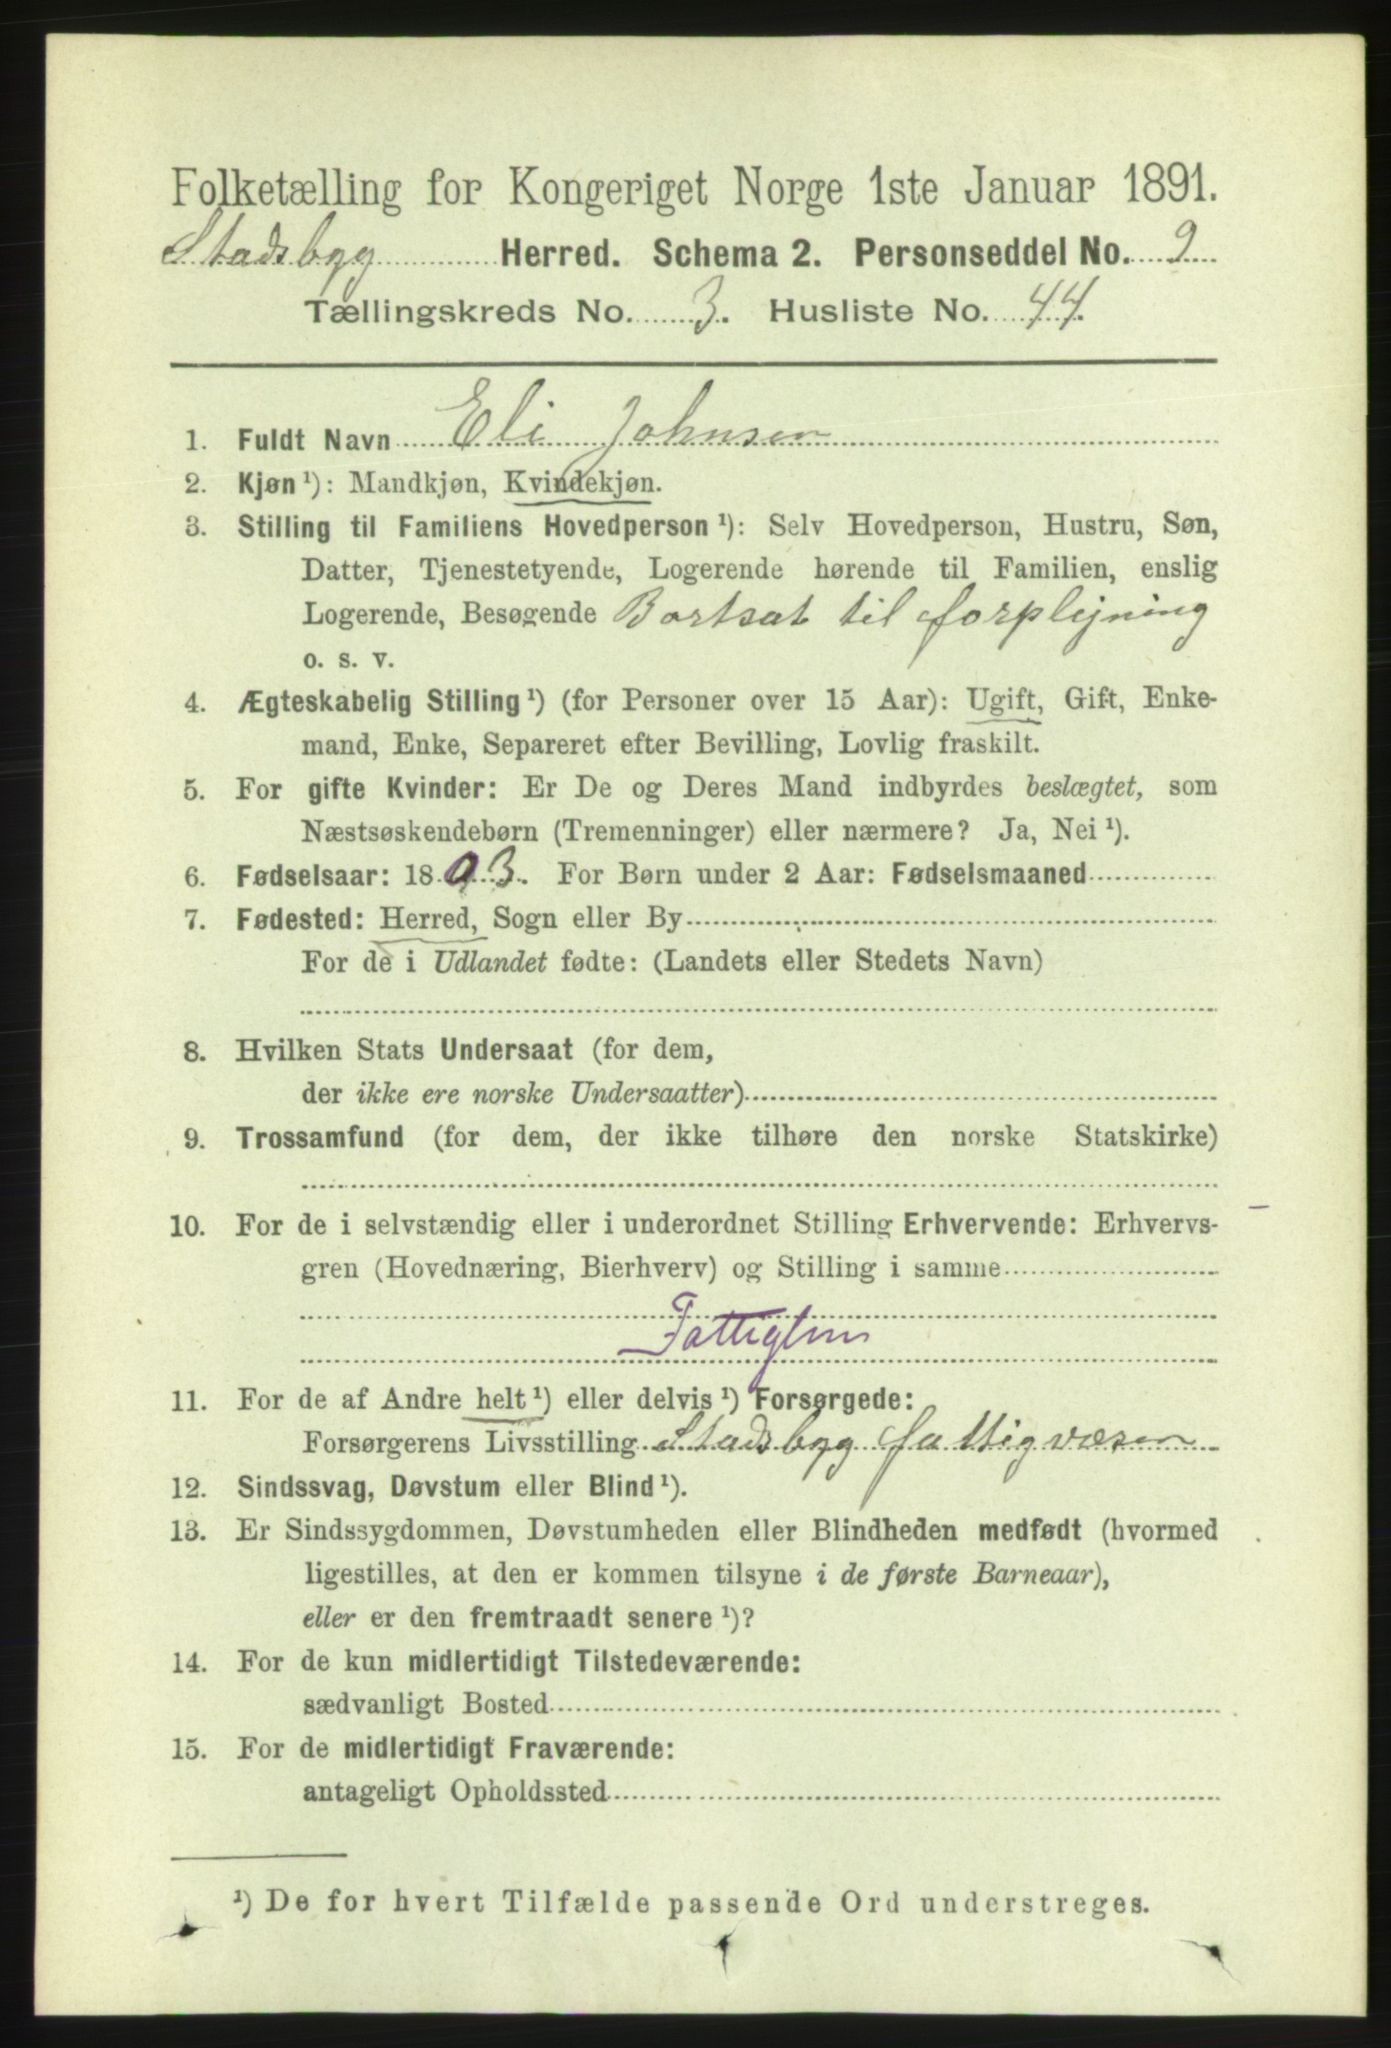 Folketælling for Kongeriget Norge 1ste Januar 1891.
Stadsbyg Herred. Schema 2. Personseddel No. 9
Tællingskreds No. 3. Husliste No. 44.
1. Fuldt Navn Eli Johnsen
2. Kjøn ¹): Mandkjøn, Kvindekjøn.
3. Stilling til Familiens Hovedperson ¹): Selv Hovedperson, Hustru, Søn,
Datter, Tjenestetyende, Logerende hørende til Familien, enslig
Logerende, Besøgende Bortsat til forplejning
o. s. v.
4. Ægteskabelig Stilling ¹) (for Personer over 15 Aar): Ugift, Gift, Enke-
mand, Enke, Separeret efter Bevilling, Lovlig fraskilt.
5. For gifte Kvinder: Er De og Deres Mand indbyrdes beslægtet, som
Næstsøskendebørn (Tremenninger) eller nærmere? Ja, Nei ¹).
6. Fødselsaar: 1803. For Børn under 2 Aar: Fødselsmaaned
7. Fødested: Herred, Sogn eller By
For de i Udlandet fødte: (Landets eller Stedets Navn)
8. Hvilken Stats Undersaat (for dem,
der ikke ere norske Undersaatter)
9. Trossamfund (for dem, der ikke tilhøre den norske Statskirke)
10. For de i selvstændig eller i underordnet Stilling Erhvervende: Erhvervs-
gren (Hovednæring, Bierhverv) og Stilling i samme
Fattiglem
11. For de af Andre helt ¹) eller delvis ¹) Forsørgede:
Forsørgerens Livsstilling Stadsbyg fattigvæsen
12. Sindssvag, Døvstum eller Blind ¹).
13. Er Sindssygdommen, Døvstumheden eller Blindheden medfødt (hvormed
ligestilles, at den er kommen tilsyne i de første Barneaar),
eller er den fremtraadt senere ¹)?
14. For de kun midlertidigt Tilstedeværende:
sædvanligt Bosted
15. For de midlertidigt Fraværende:
antageligt Opholdssted
¹) De for hvert Tilfælde passende Ord understreges.